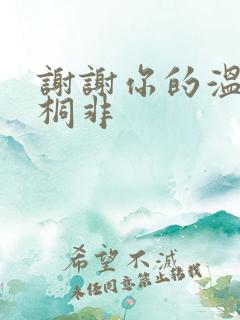 謝謝你的溫
桐非
希望不滅
未任同意禁止轉載